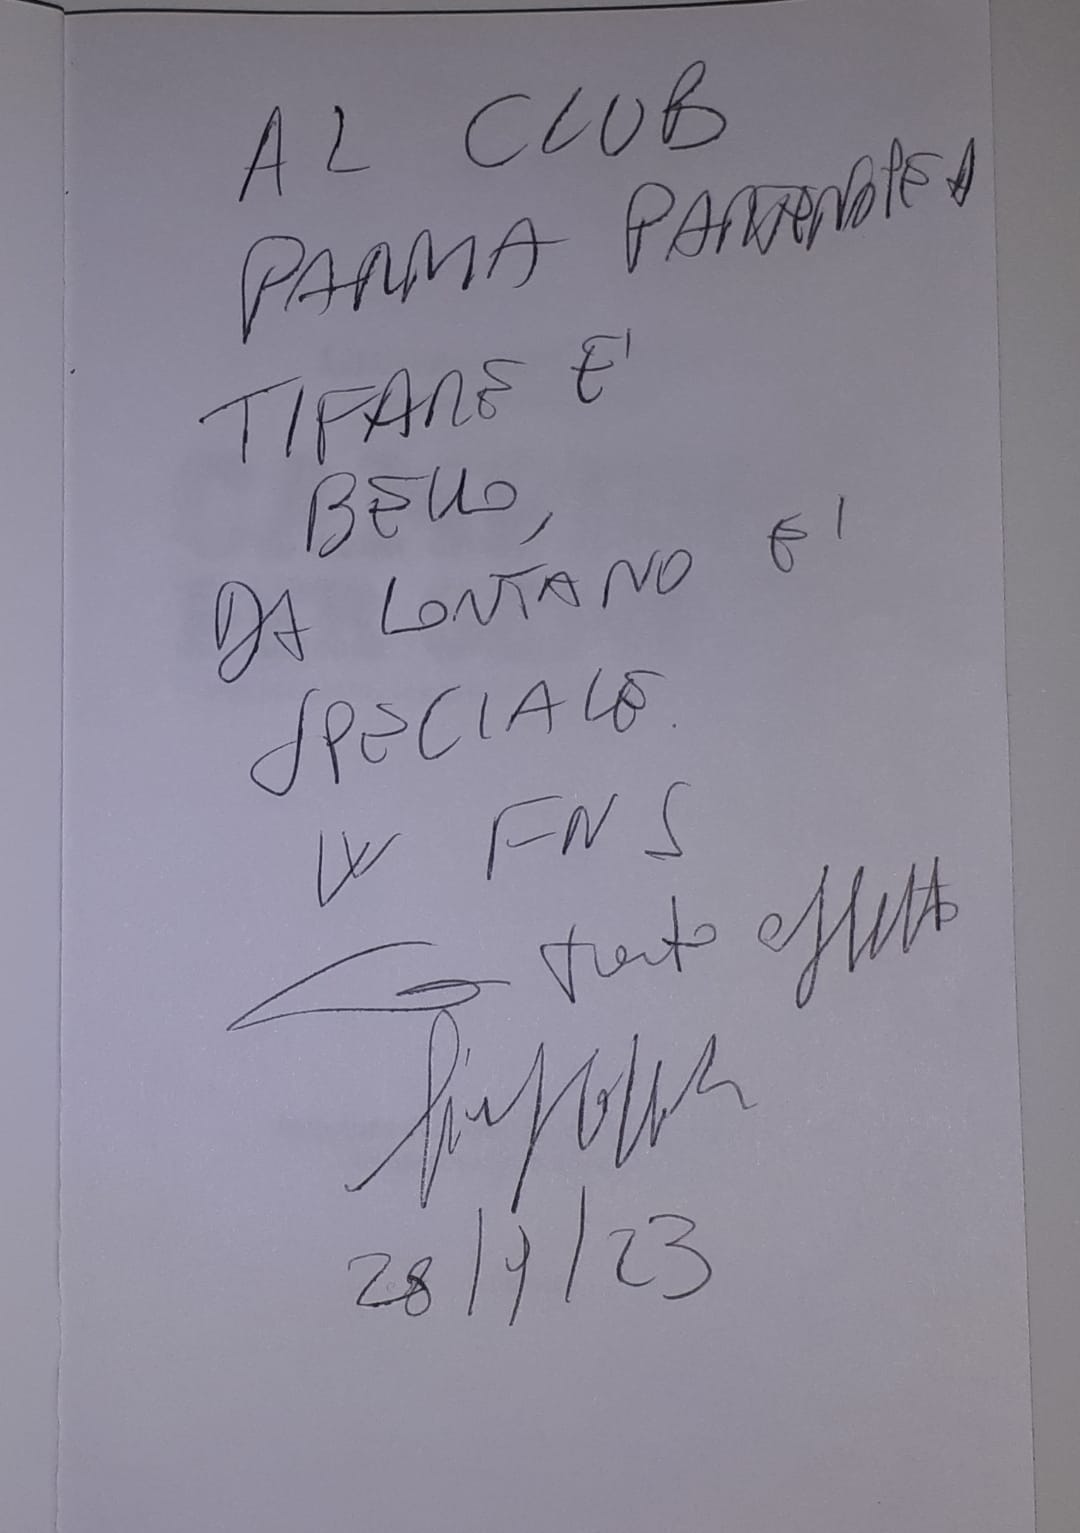 AL CLUB
PARMA PARTENOPEA
TIFARE E'
BELLO,
DA LONTANO E'
SPECIALE.
W FNS
28/9/23